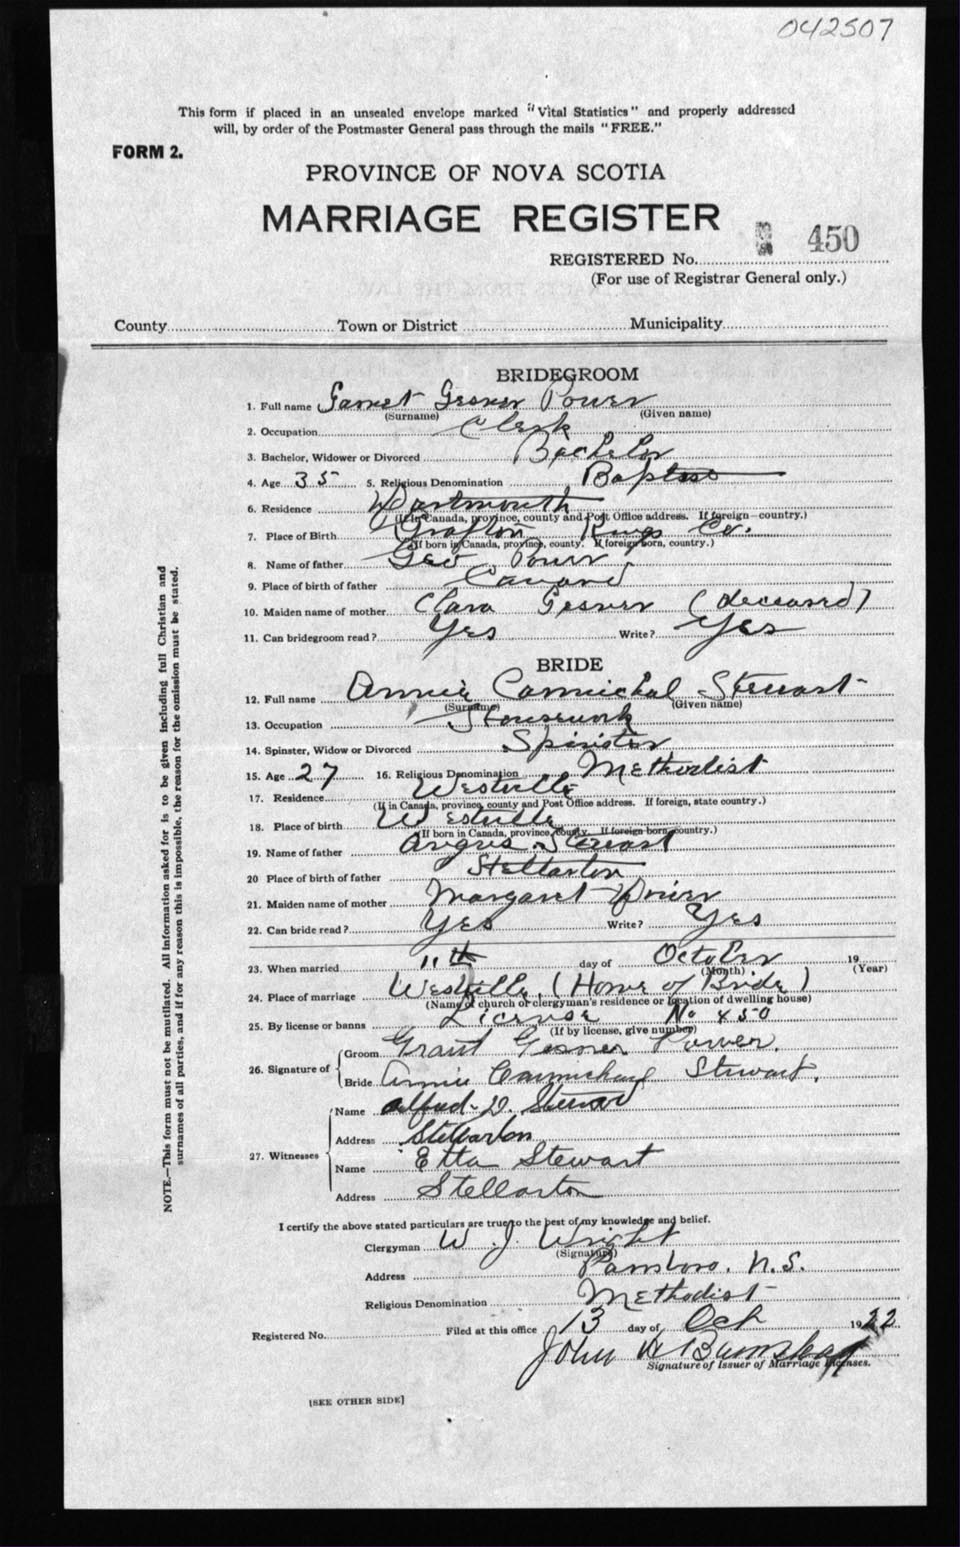 042507
This form if placed in an unsealed envelope marked "Vital Statistics" and properly addressed
will, by order of the Postmaster General pass through the mails "FREE."
FORM 2.
PROVINCE OF NOVA SCOTIA
MARRIAGE REGISTER
450
REGISTERED No.
(For use of Registrar General only.)
County Town or District Municipality
BRIDEGROOM
1. Full name Garnet Gesner Power
(Surname) (Given name)
2. Occupation Clerk
3. Bachelor, Widower or Divorced Bachelor
4. Age 35 5. Religious Denomination Baptist
6. Residence Dartmouth
(If in Canada, province, county and Post Office address. If foreign—country.)
7. Place of Birth Grafton Kings Co.
(If born in Canada, province, county. If foreign born, country.)
8. Name of father Geo Power
9. Place of birth of father Canard
10. Maiden name of mother Clara Gesner (deceased)
11. Can bridegroom read? Yes Write? Yes
BRIDE
12. Full name Annie Carmichal Stewart
(Surname) (Given name)
13. Occupation Housework
14. Spinster, Widow or Divorced Spinster
15. Age 27 16. Religious Denomination Methodist
17. Residence Westville
(If in Canada, province, county and Post Office address. If foreign, state country.)
18. Place of birth Westville
(If born in Canada, province, county. If foreign born, country.)
19. Name of father Angus Stewart
20 Place of birth of father Stellarton
21. Maiden name of mother Margaret
22. Can bride read? Yes Write? Yes
23. When married 11th day of October 19
(Month) (Year)
24. Place of marriage Westville (Home of Bride)
(Name of church or clergyman's residence or location of dwelling house)
25. By license or banns License No 450
(If by license, give number)
26. Signature of
Groom Grant Gesner Power.
Bride Annie Carmichael Stewart.
27. Witnesses
Name Alfred D. Stewart
Address Stellarton
Name Etta Stewart
Address Stellarton
I certify the above stated particulars are true to the best of my knowledge and belief.
Clergyman W. J. Wright
(Signature)
Address Parrsboro. N.S.
Religious Denomination Methodist
Registered No. Filed at this office 13 day of Oct 1922
John W
Signature of Issuer of Marriage Licenses.
[SEE OTHER SIDE]
NOTE.—This form must not be mutilated. All information asked for is to be given including full Christian and
surnames of all parties, and if for any reason this is impossible, the reason for the omission must be stated.